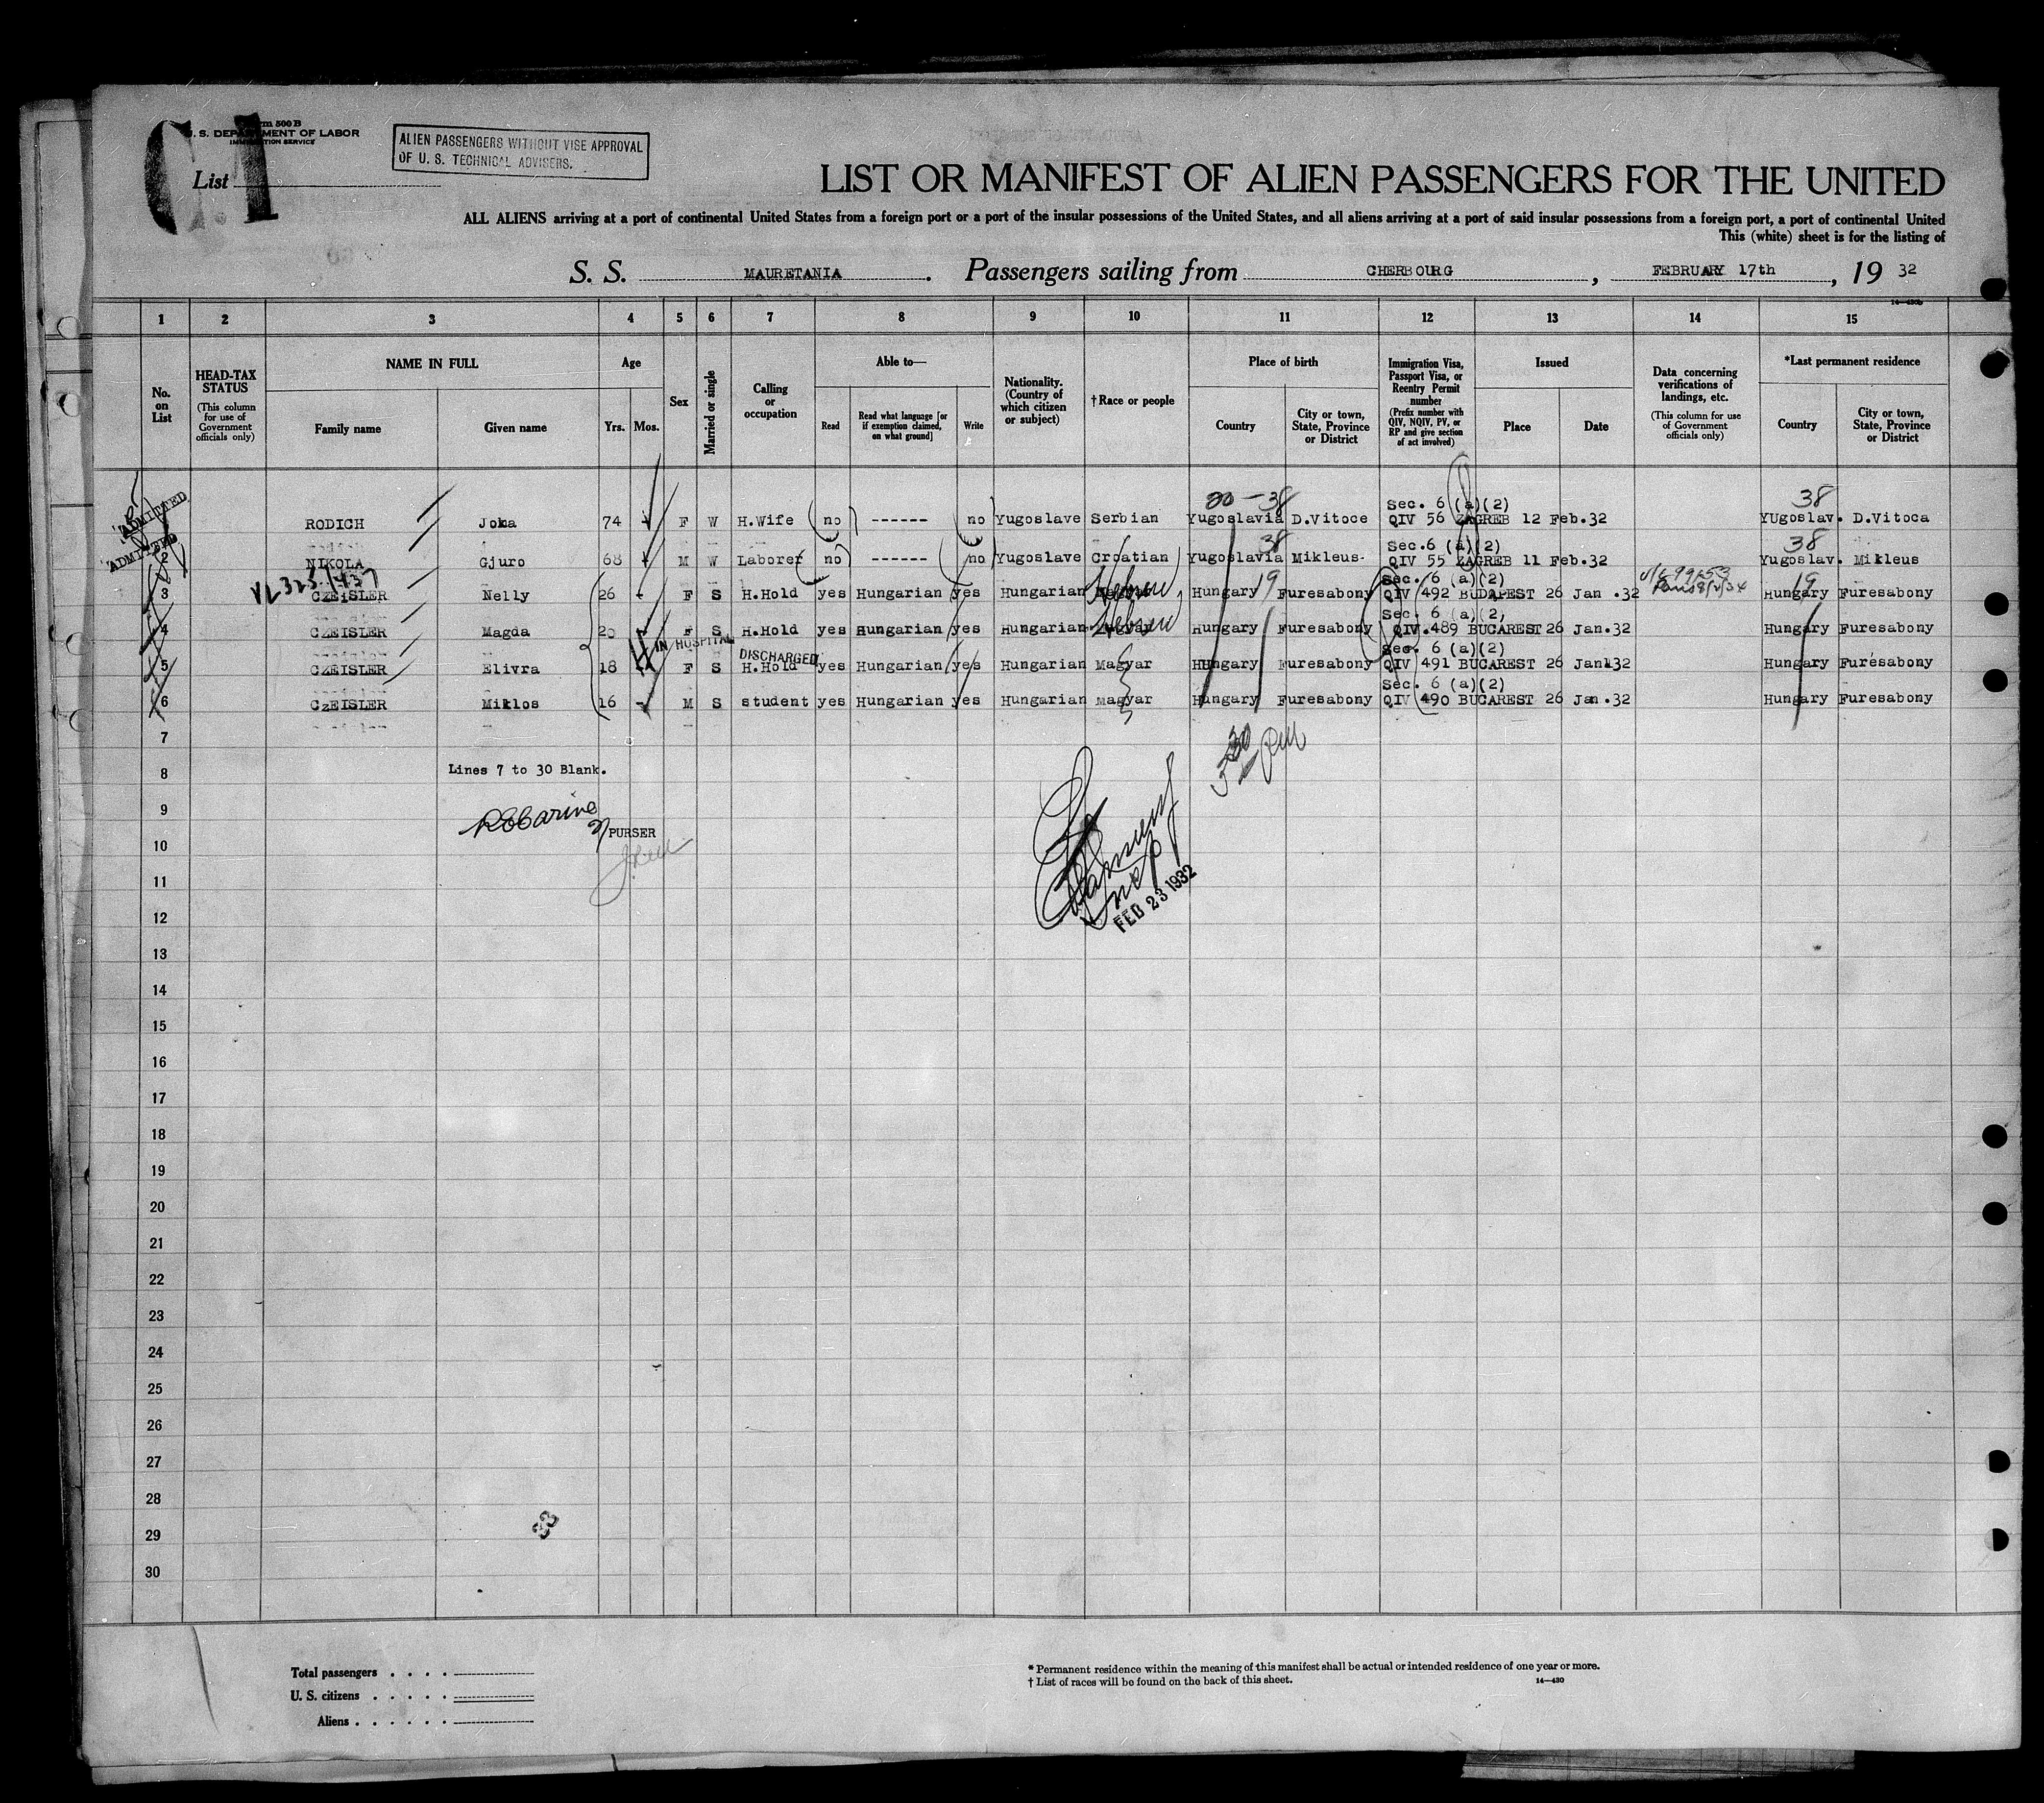 Form 500 B
U. S. DEPARTMENT OF LABOR
IMMIGRATION SERVICE
List
ALIEN PASSENGERS WITHOUT VISE APPROVAL
OF U. S. TECHNICAL ADVISERS.
LIST OR MANIFEST OF ALIEN PASSENGERS FOR THE UNITED
ALL ALIENS arriving at a port of continental United States from a foreign port or a port of the insular possessions of the United States, and all aliens arriving at a port of said insular possessions from a foreign port, a port of continental United
This (white) sheet is for the listing of
S. S. MAURETANIA. Passengers sailing from CHERBOURG, FEBRUARY 17th, 19 32
14—430b
1 2 3 4 5 6 7 8 9 10 11 12 13 14 15
No. on List
HEAD-TAX STATUS (This column for use of Government officials only)
NAME IN FULL
Family name
Given name
Age
Yrs. Mos.
Sex
Married or single
Calling or occupation
Able to—
Read
Read what language [or if exemption claimed, on what ground]
Write
Nationality. (Country of which citizen or subject)
†Race or people
Place of birth
Country
City or town, State, Province or District
Immigration Visa, Passport Visa, or Reentry Permit number (Prefix number with QIV, NQIV, PV, or RP and give section of act involved)
Issued
Place
Date
Data concerning verifications of landings, etc. (This column for use of Government officials only)
*Last permanent residence
Country
City or town, State, Province or District
20 - 38 Sec. 6 (a)(2) 38
ADMITTED RODICH Joka 74 F W H.Wife no ------ no Yugoslave Serbian Yugoslavia D.Vitoce QIV 56 ZAGREB 12 Feb.32 YUgoslav. D.Vitoca
38 Sec.6 (a)(2) 38
ADMITTED 2 NIKOLA Gjuro 68 M W Laborer no ------ no Yugoslave Croatian Yugoslavia Mikleus. QIV 55 ZAGREB 11 Feb.32 Yugoslav. Mikleus
Sec. 6 (a)(2)
3 CZEISLER Nelly 26 - F S H.Hold yes Hungarian yes Hungarian Hebrew Hungary 9 Furesabony QIV 492 BUDAPEST 26 Jan .32 19 Hungary Furesabony
Sec. 6 (a)(2)
4 CZEISLER Magda 20 F S H.Hold yes Hungarian yes Hungarian Hebrew Hungary Furesabony QIV.489 BUCAREST 26 Jan.32 Hungary Furesabony
IN HOSPITAL DISCHARGED
Sec. 6 (a)(2)
5 CZEISLER Elivra 18 F S H.Hold yes Hungarian yes Hungarian Magyar HUngary Furesabony QIV 491 BUCAREST 26 Jan132 Hungary Furesabony
Sec. 6 (a)(2)
6 CzEISLER Miklos 16 - M S student yes Hungarian yes Hungarian Magyar Hungary Furesabony QIV 490 BUCAREST 26 Jan.32 Hungary Furesabony
7
8 Lines 7 to 30 Blank.
9
PURSER
10
11
FEB 23 1932
12
13
14
15
16
17
18
19
20
21
22
23
24
25
26
27
28
33
29
30
Total passengers
U. S. citizens
Aliens
* Permanent residence within the meaning of this manifest shall be actual or intended residence of one year or more.
† List of races will be found on the back of this sheet.
14—430